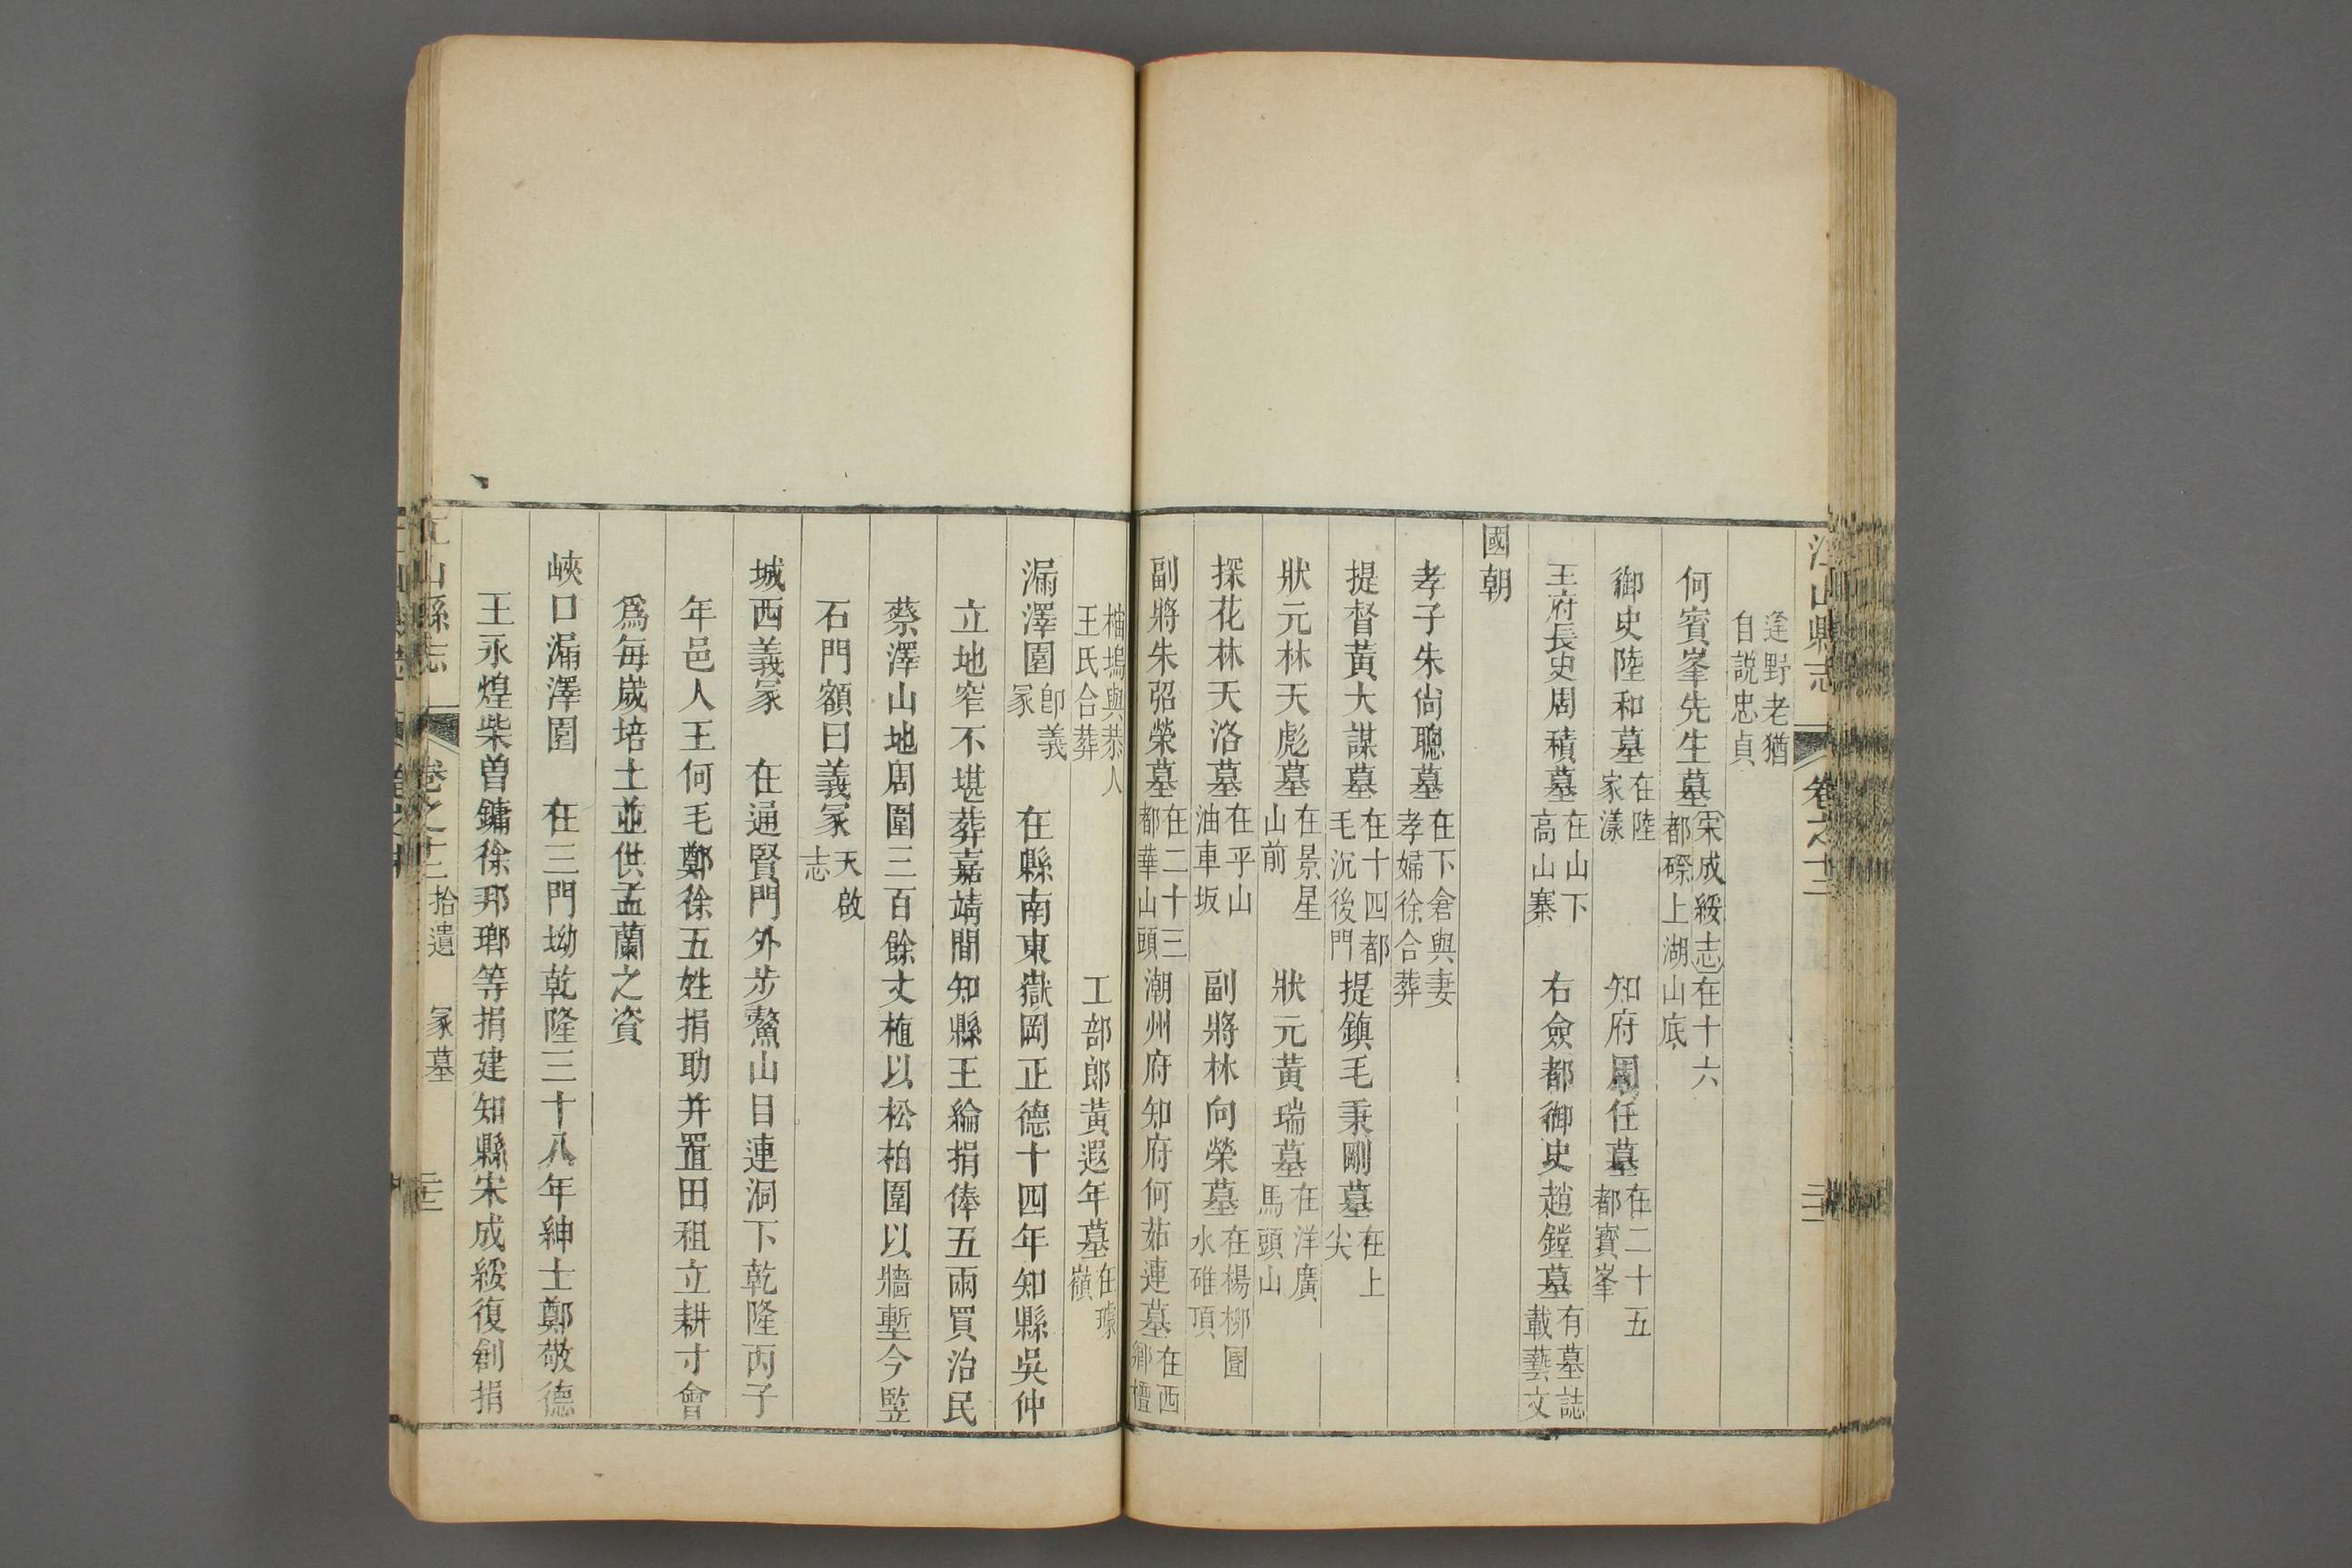 江山縣志 卷之十二 二十二
逢野老猶
自説忠貞
何賓峯先生墓 宋成綏志 在十六
都磜上湖山底
御史陸和墓 在陸
家漾 知府周任墓 在二十五
都寳峯
王府長史周積墓 在山下
高山寨 右僉都御史趙鏜墓 有墓誌
載藝文
國朝
孝子朱尙聰墓 在下倉與妻
孝婦徐合葬
提督黃大謀墓 在十四都
毛沉後門 提鎮毛秉剛墓 在上
尖
狀元林天彪墓 在景星
山前 狀元黃瑞墓 在洋廣
馬頭山
探花林天洛墓 在平山
油車坂 副將林向榮墓 在楊柳圖
水碓頂
副將朱弨榮墓 在二十三
都華山頭 潮州府知府何茹連墓 在西
鄉檀
柚塢與恭人
王氏合葬 工部郎黃遐年墓 在璩
嶺
漏澤園 卽義
冢 在縣南東嶽岡正德十四年知縣吳仲
立地窄不堪葬嘉靖間知縣王綸捐俸五兩買治民
蔡澤山地周圍三百餘丈植以松柏圍以牆塹今竪
石門額曰義冢 天啟
志
城西義冢 在通賢門外步鰲山目連洞下乾隆丙子
年邑人王何毛鄭徐五姓捐助并置田租立耕寸會
爲每嵗培土並供盂蘭之資
峽口漏澤園 在三門坳乾隆三十八年紳士鄭敬德
王永煌柴曾鏞徐邦瑯等捐建知縣宋成綏復創捐
江山縣志 卷之十二 拾遺 冢墓 二十三